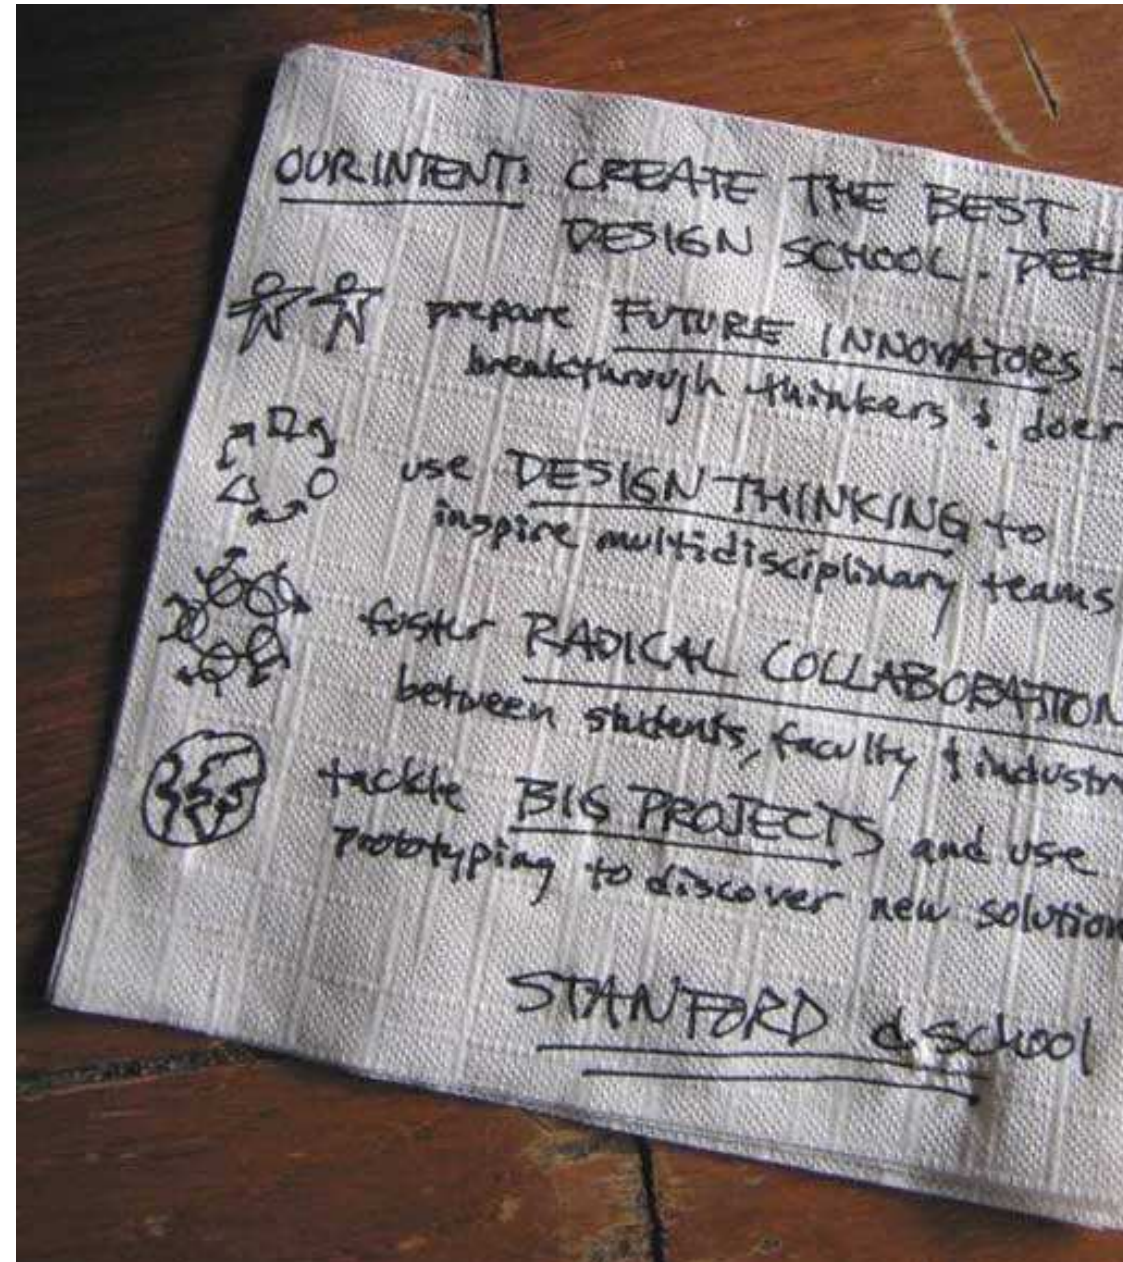 OUR INTENT: CREATE THE BEST
DESIGN SCHOOL. PER
prepare FUTURE INNOVATORS
breakthrough thinkers & doer
use DESIGN THINKING to
inspire multidisciplinary teams
foster RADICAL COLLABORATION
between students, faculty & industr
tackle BIG PROJECTS and use
prototyping to discover new solution
STANFORD d.school